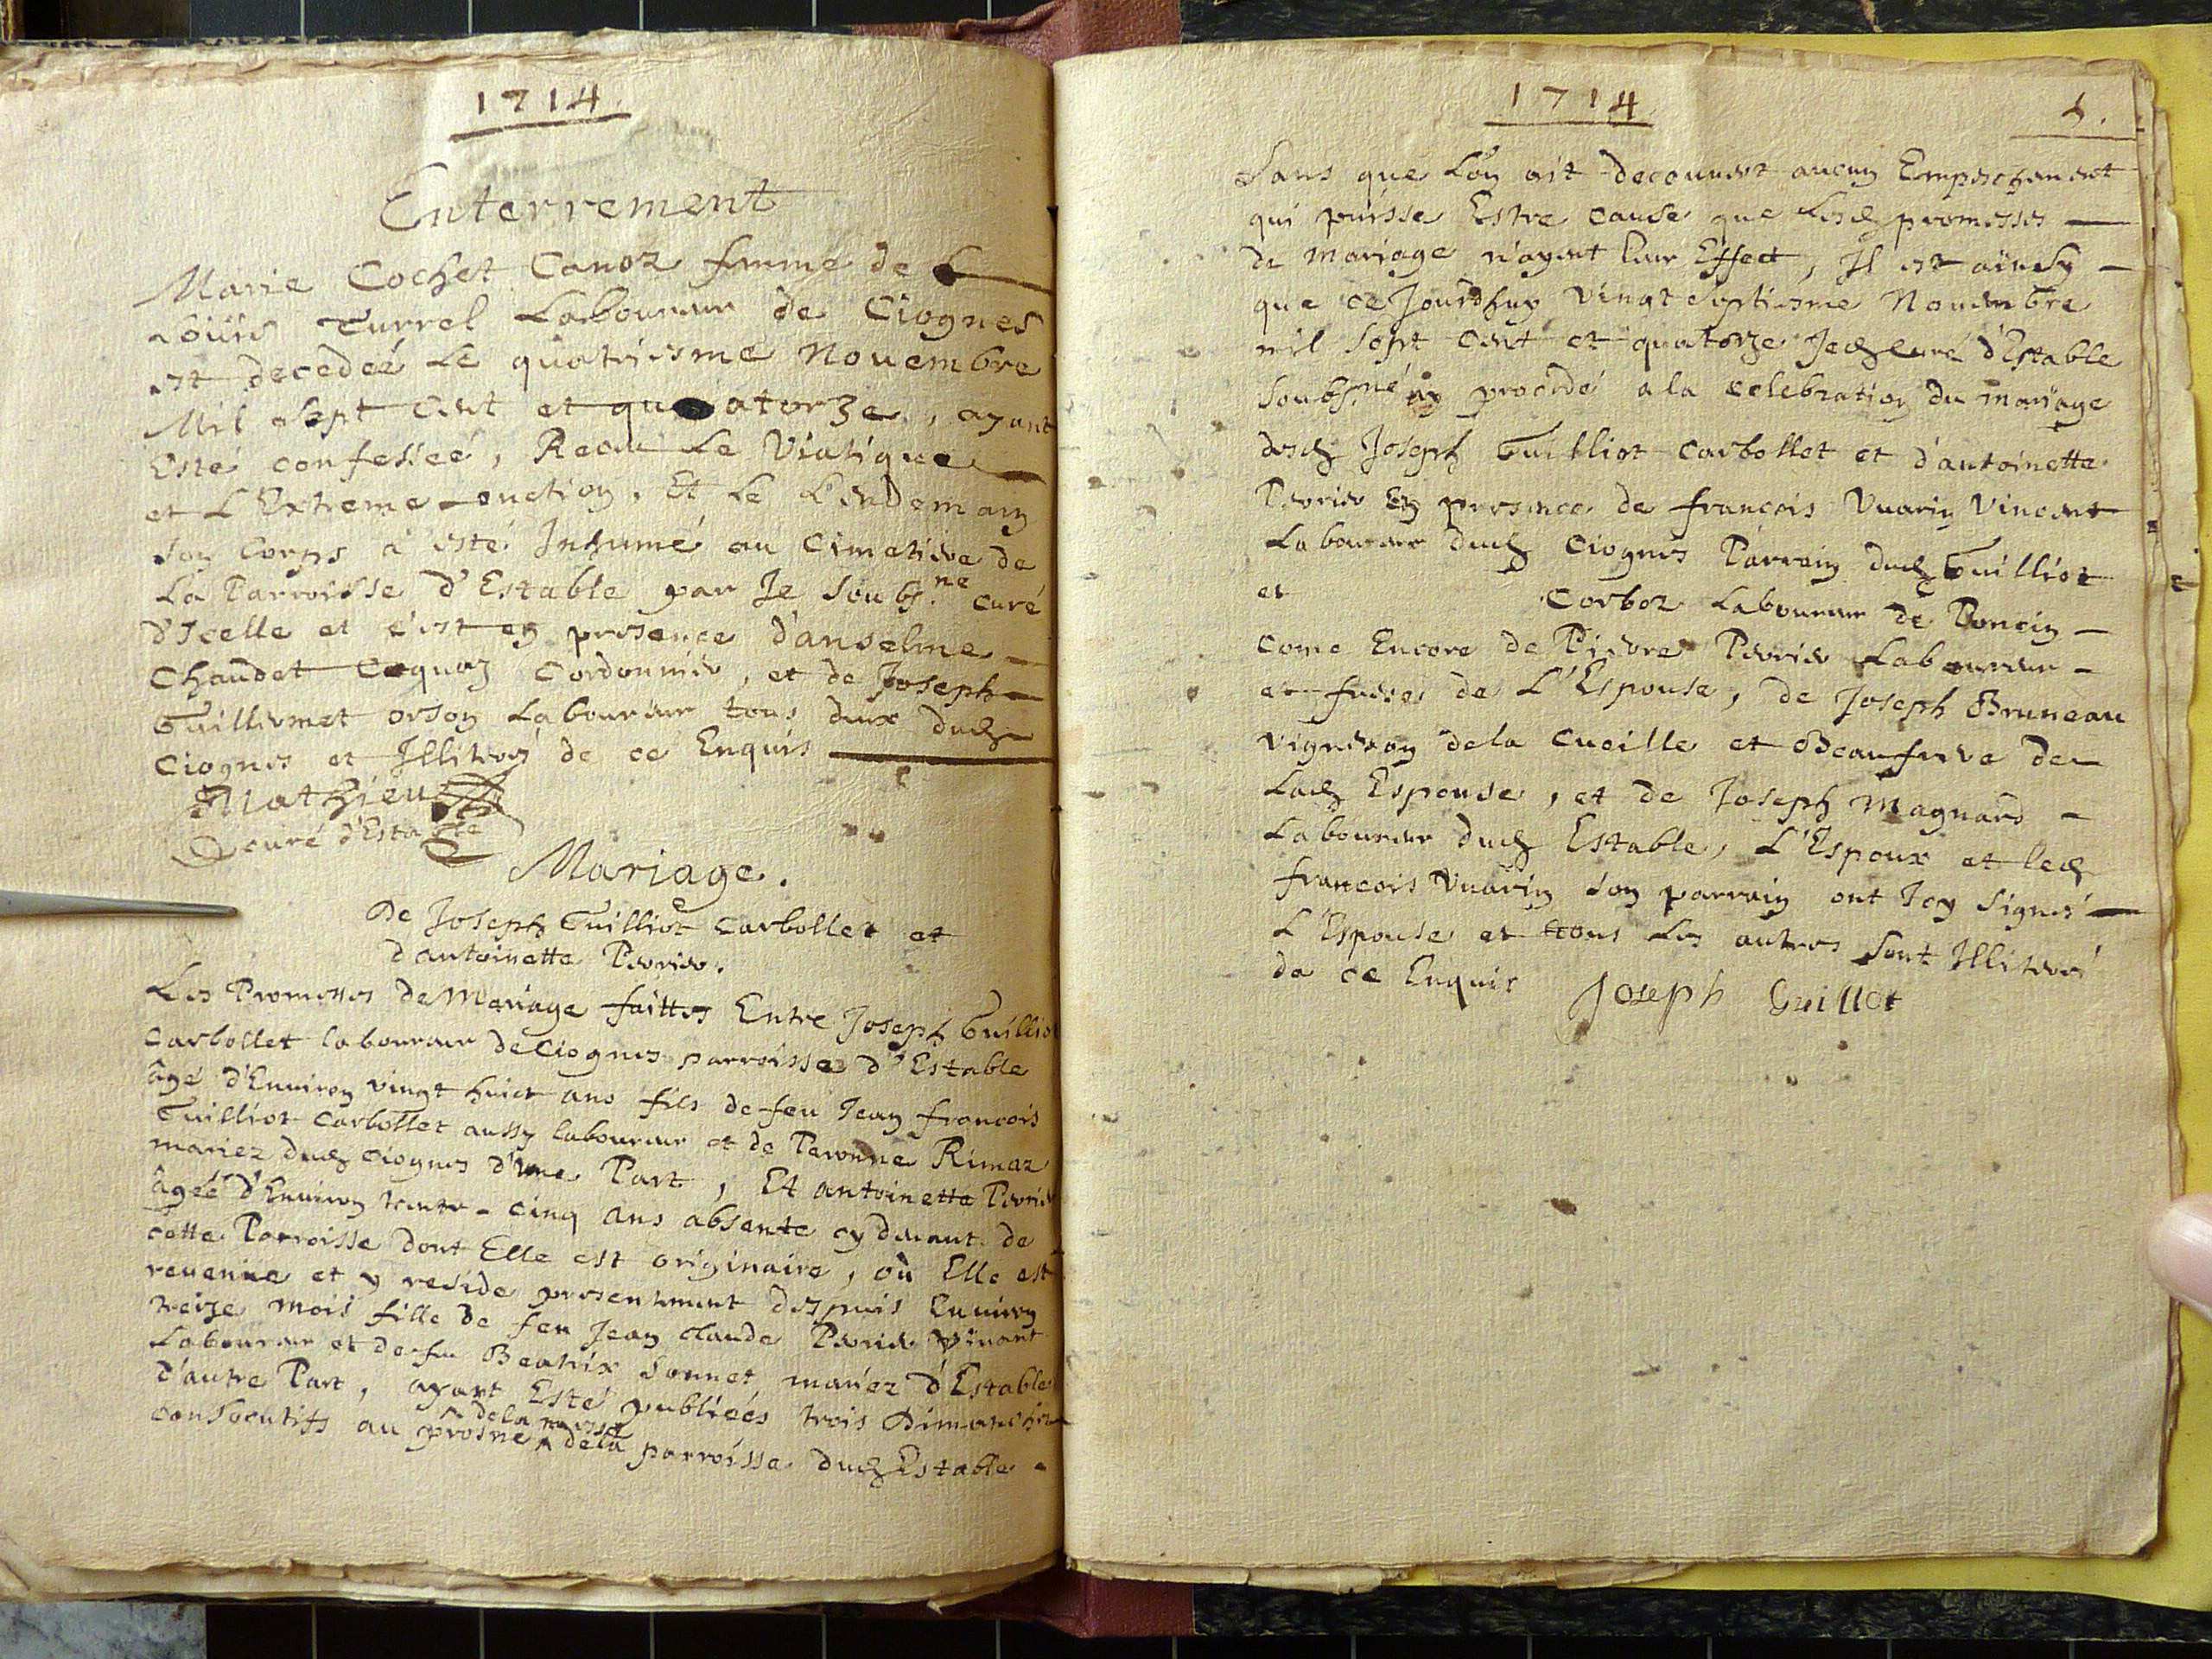 1714
Enterrement
Marie Cochet Canoz femme de
Loüis Turrel Laboureur de Ciognes
est decedeé Le quatriesme Nouembre
Mil Sept Cent et quatorze, ayant
Esté confesseé, Receu Le Viatique
et L'Extreme-onction, Et Le L'endemain
Son Corps à esté Inhumé au Cimetiere de
La Parroisse d'Estable par Je Soubs.né curé
d'Icelle et c'est en presence d'anselme
Chaudet Coquaz Cordonnier, et de Joseph
Guillermet orson Laboureur tous deux dud
Ciognes et Illiterés de ce Enquis
Mathieu
curé d'Estable
Mariage.
De Joseph Guilliot Carbollet et
d'antoinette Perrier.
Les Promesses de Mariage faittes Entre Joseph Guilliot
Carbollet laboureur de Ciognes parroisse d'Estable
âgé d'Enuiron vingt huict ans fils de feu Jean francois
Guilliot Carbollet aussy laboureur et de Peronne Rimaz
mariez dud Ciognes d'Vne Part, Et antoinette Perrier
âgeé d'Enuiron trente-cinq ans absente cy deuant de
cette Parroisse dont Elle est originaire, où Elle est
reuenüe et y reside presentement despuis Enuiron
treize mois fille de feu Jean Claude Perrier viuant
Laboureur et de feu Beatrix Sonnet mariez d'Estable
d'autre Part, ayant Esté publieés trois Dimanches
consecutifs au prosne ^ de la messe de la parroisse dud Estable
1714
Sans que L'on ait decouuert aucun Empeschement
qui puisse Estre cause que Lesd promesses
de mariage n'ayent leur Effect, Il est aïnsy
que ce Jourdhuy vingt septiesme Nouembre
mil Sept Cent et quatorze Jed curé d'Estable
Soubs.né ay procedé a la celebration du mariage
desd Joseph Guilliot Carbollet et d'antoinette
Perrier En presence de francois Vuarin Vincent
Laboureur dud Ciognes Parrain dud Guilliot
et Corboz Laboureur de Poncin
come Encore de Pierre Perrier Laboureur
et frere de L'Espouse, de Joseph Bruneau
vigneron de la Cueille et Beaufrere de
Lad Espouse, et de Joseph Magnard
Laboureur dud Estable, L'Espoux et led
francois Vuarin son parrain ont Icy signés
L'Espouse et tous Les autres Sont Illiterés
de ce Enquis Joseph Guillot